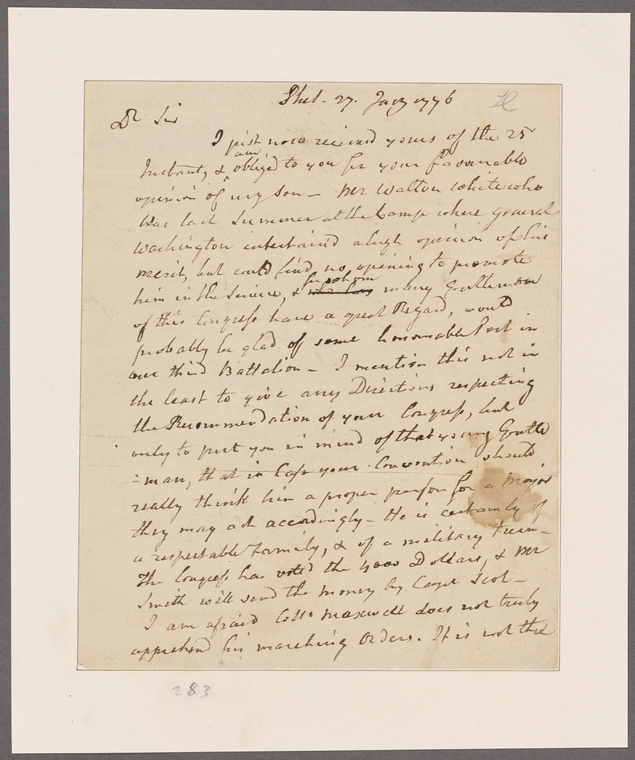 Phil. 27. Jany 1776
Dr Sir
I just now received yours of the 25
Instant, & am obliged to you for your favourable
opinion of my Son – Mr Walton White who
was last Summer at the Camp where General
Washington entertained a high opinion of his
merit, but could find no opening to promote
him in the Service, & for whom many Gentlemen
of this Congress have a great Regard, would
probably be glad of some honourable Post in
our third Battalion – I mention this not in
the least to give any Directions respecting
the Recommendation of your Congress, but
only to put you in mind of that young Gentle
=man, that in Case your Convention should
really think him a proper person for a Major
they may act accordingly – He is certainly of
a respectable Family, & of a military turn –
The Congress has voted the 4000 Dollars, & Mr
Smith will send the money by Capt Scot –
I am afraid Coll. Maxwell does not truly
apprehend his marching Orders. It is not the
283